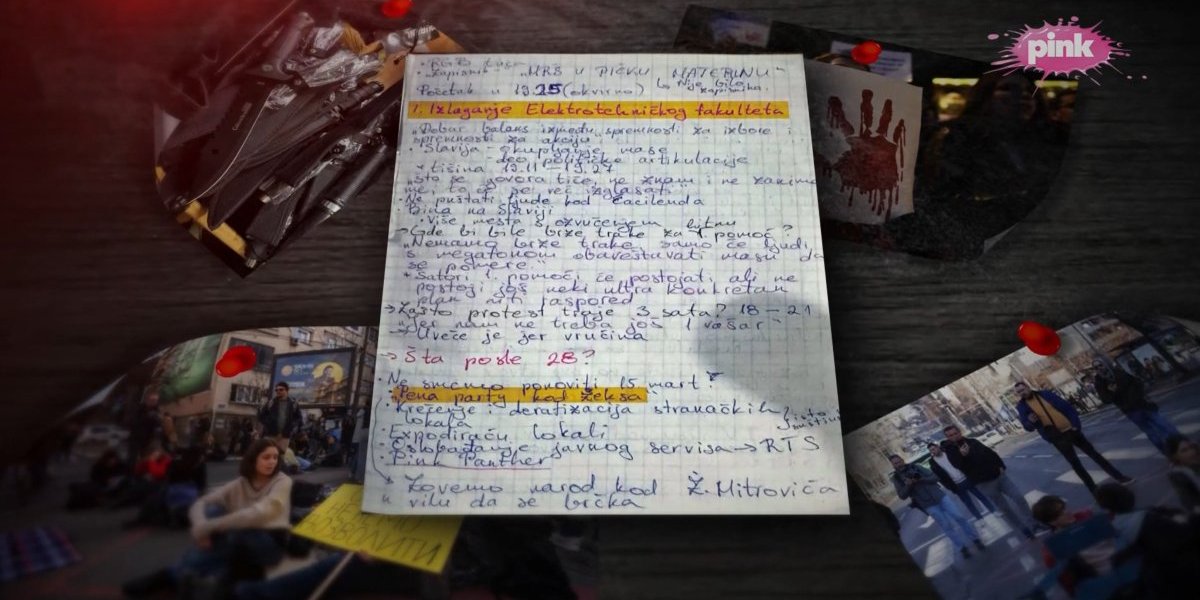 pink
"MRŠ U PIČKU MATERINU"
Početak u 19.15 (okvirno) ↳ Nije bilo zapisnika.
1. Izlaganje Elektrotehničkog fakulteta
"Dobar balans između spremnosti za izbore i
spremnosti za akciju"
Slavija - okupljanje mase
- deo političke artikulacije
• tišina 19.11 - 19.27
"Što se govora tiče, ne znam i ne zanima
me, to će se već izglasati"
• Ne puštati ljude kod Ćacilenda
Bina na Slaviji
• Više mesta s ozvučenjem bitnu
→ Gde bi bile brze trake za 1. pomoć?
"Nemamo brze trake, samo će ljudi
s megafonom obaveštavati masu da
se pomere."
• Šatori 1. pomoći će postojati ali ne
postoji još neki ultra konkretan
plan niti raspored
→ Zašto protest traje 3 sata? 18 - 21
"Jer nam ne treba još 1 vašar"
→ Uveče je jer vrućina
→ Šta posle 28?
• Ne smemo ponoviti 15 mart?
• Pena party kod Žeksa
• Krečenje i deratizacija stranačkih
lokala
• Expodiraću lokali
• Oslobađanje javnog servisa → RTS
• Pink Panther
• Zovemo narod kod Ž. Mitrovića
u vilu da se brčka